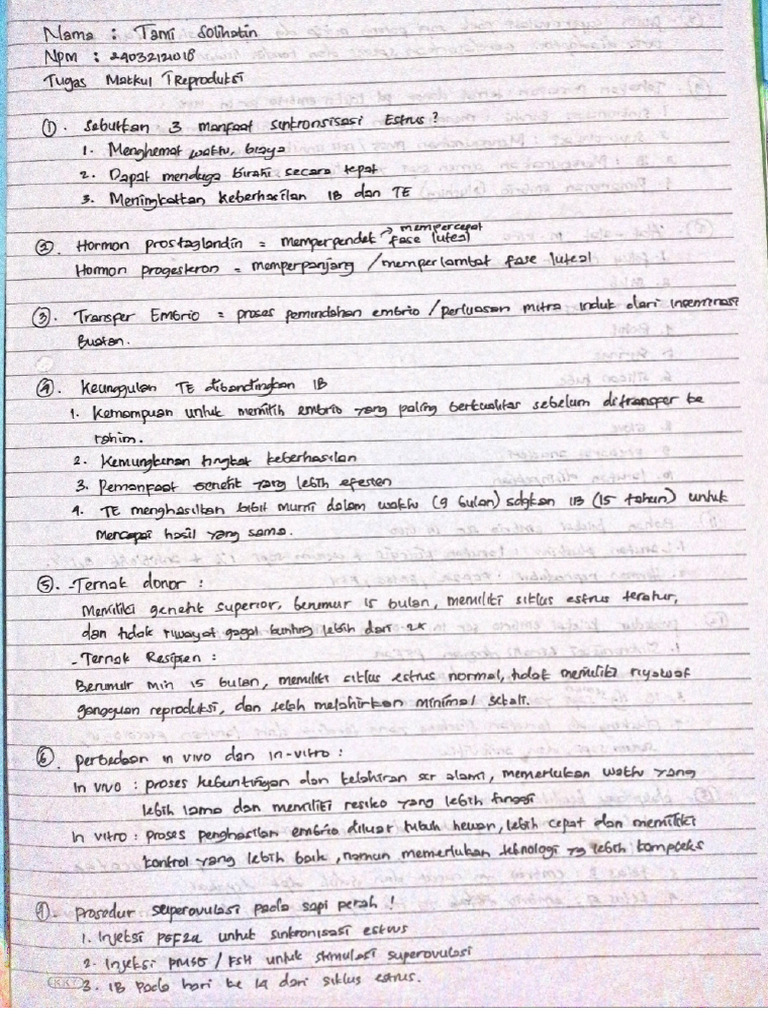 Nama : Tami Solihatin
Npm : 24032121018
Tugas Matkul TReproduksi
①. Sebutkan 3 manfaat sinkronsisasi Estrus?
1. Menghemat waktu, biaya
2. Dapat menduga birahi secara tepat
3. Meningkatkan keberhasilan IB dan TE
② . Hormon prostaglandin = memperpendek → mempercepat fase luteal
Homon progesteron = memperpanjang / memperlambat fase luteal
③. Transfer Embrio = proses pemindahan embrio / perluasan mitra induk dari inseminasi
Buatan.
④. Keunggulan TE dibandingkan IB
1. Kemampuan untuk memilih embrio yang paling berkualitas sebelum ditransfer ke
rahim.
2. Kemungkinan tingkat keberhasilan
3. Pemanfaat genetit yang lebih efesien
4. TE menghasilkan bibit murni dalam waktu (9 bulan) sdgkan IB (15 tahun) untuk
Mencapai hasil yang sama.
⑤. -Ternak donor :
Memiliki genetik superior, berumur 15 bulan, memiliki siklus estrus teratur,
dan tidak riwayat gagal bunting lebih dari 2x
- Ternak Resipien :
Berumur min 15 bulan, memiliki siklus estrus normal, tidak memiliki riyawat
gangguan reproduksi, dan telah melahirkan minimal sekali.
⑥. perbedaan in vivo dan in-vitro :
In vivo : proses kebuntingan dan kelahiran scr alami, memerlukan waktu yang
lebih lama dan memiliki resiko yang lebih tinggi
In vitro : proses penghasilan embrio diluar tubuh hewan, lebih cepat dan memiliki
kontrol yang lebih baik , namun memerlukan teknologi yg lebih kompleks
⑦. prosedur superovulasi pada sapi perah !
1. Injeksi PGF2α untuk sinkronisasi estrus
2. Injeksi PMSG / FSH untuk stimulasi superovulasi
KKY 3. IB Pada hari ke 14 dari siklus estrus.